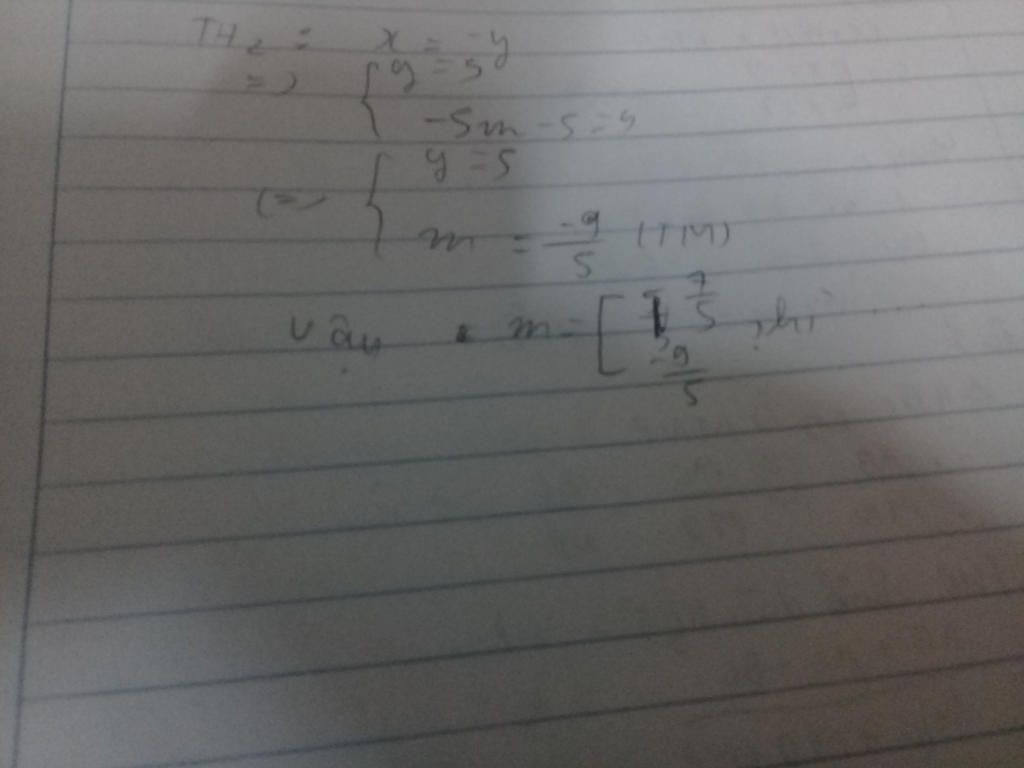 TH2 : x = -y
=> { y = 5
-5m - 5 = 4
<=> { y = 5
m = -9/5 (TM)
Vậy m = [ 7/5 , thì ......
-9/5